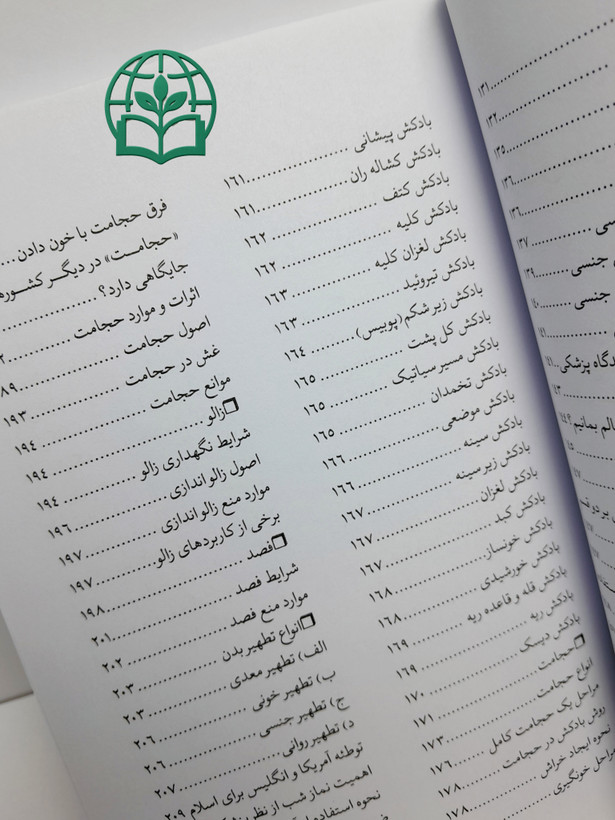 ۱۳۱
۱۳۲
۱۳۵
۱۳۶
۱۳۶
سی ........ ۱۳۷
جنسی ........ ۱۳۹
جنسی ........ ۱۴۰
۱۴۱
دگاه پزشکی ..۱۴۱
الم بمانیم؟
بادکش پیشانی ........ ۱۶۱
بادکش کشاله ران ........ ۱۶۱
بادکش کتف ........ ۱۶۲
بادکش کلیه ........ ۱۶۲
بادکش لغزان کلیه ........ ۱۶۳
بادکش تیروئید ........ ۱۶۳
بادکش زیر شکم (پوبیس) ........ ۱۶۴
بادکش کل پشت ........ ۱۶۵
بادکش مسیر سیاتیک ........ ۱۶۵
بادکش تخمدان ........ ۱۶۵
بادکش موضعی ........ ۱۶۶
بادکش سینه ........ ۱۶۶
بادکش زیر سینه ........ ۱۶۷
بادکش لغزان ........ ۱۶۷
بادکش کبد ........ ۱۶۷
بادکش خونساز ........ ۱۶۸
بادکش خورشیدی ........ ۱۶۸
بادکش قله و قاعده ریه ........ ۱۶۹
بادکش ریه ........ ۱۶۹
بادکش دیسک ........ ۱۷۰
❑حجامت ........ ۱۷۱
انواع حجامت ........ ۱۷۳
مراحل یک حجامت کامل ........ ۱۷۶
روش بادکش در حجامت ........ ۱۷۸
نحوه ایجاد خراش ........
مراحل خونگیری ........ ۱۷۸
فرق حجامت با خون دادن ...
«حجامت» در دیگر کشوره
جایگاهی دارد؟ ........
اثرات و موارد حجامت ........ ۲
اصول حجامت ........ ۸۹
غش در حجامت ........ ۱۹۳
موانع حجامت ........ ۱۹۴
❑زالو ........ ۱۹۴
شرایط نگهداری زالو ........ ۱۹۴
اصول زالو اندازی ........ ۱۹۶
موارد منع زالو اندازی ........ ۱۹۷
برخی از کاربردهای زالو ........ ۱۹۷
❑فصد ........ ۱۹۸
شرایط فصد ........ ۲۰۱
موارد منع فصد ........ ۲۰۲
❑انواع تطهیر بدن ........ ۲۰۳
الف) تطهیر معدی ........ ۲۰۳
ب) تطهیر خونی ........ ۲۰۶
ج) تطهیر جنسی ........ ۲۰۶
د) تطهیر روانی ........
توطئه آمریکا و انگلیس برای اسلام ۲۰۹
اهمیت نماز شب از نظر
نحوه استفاده